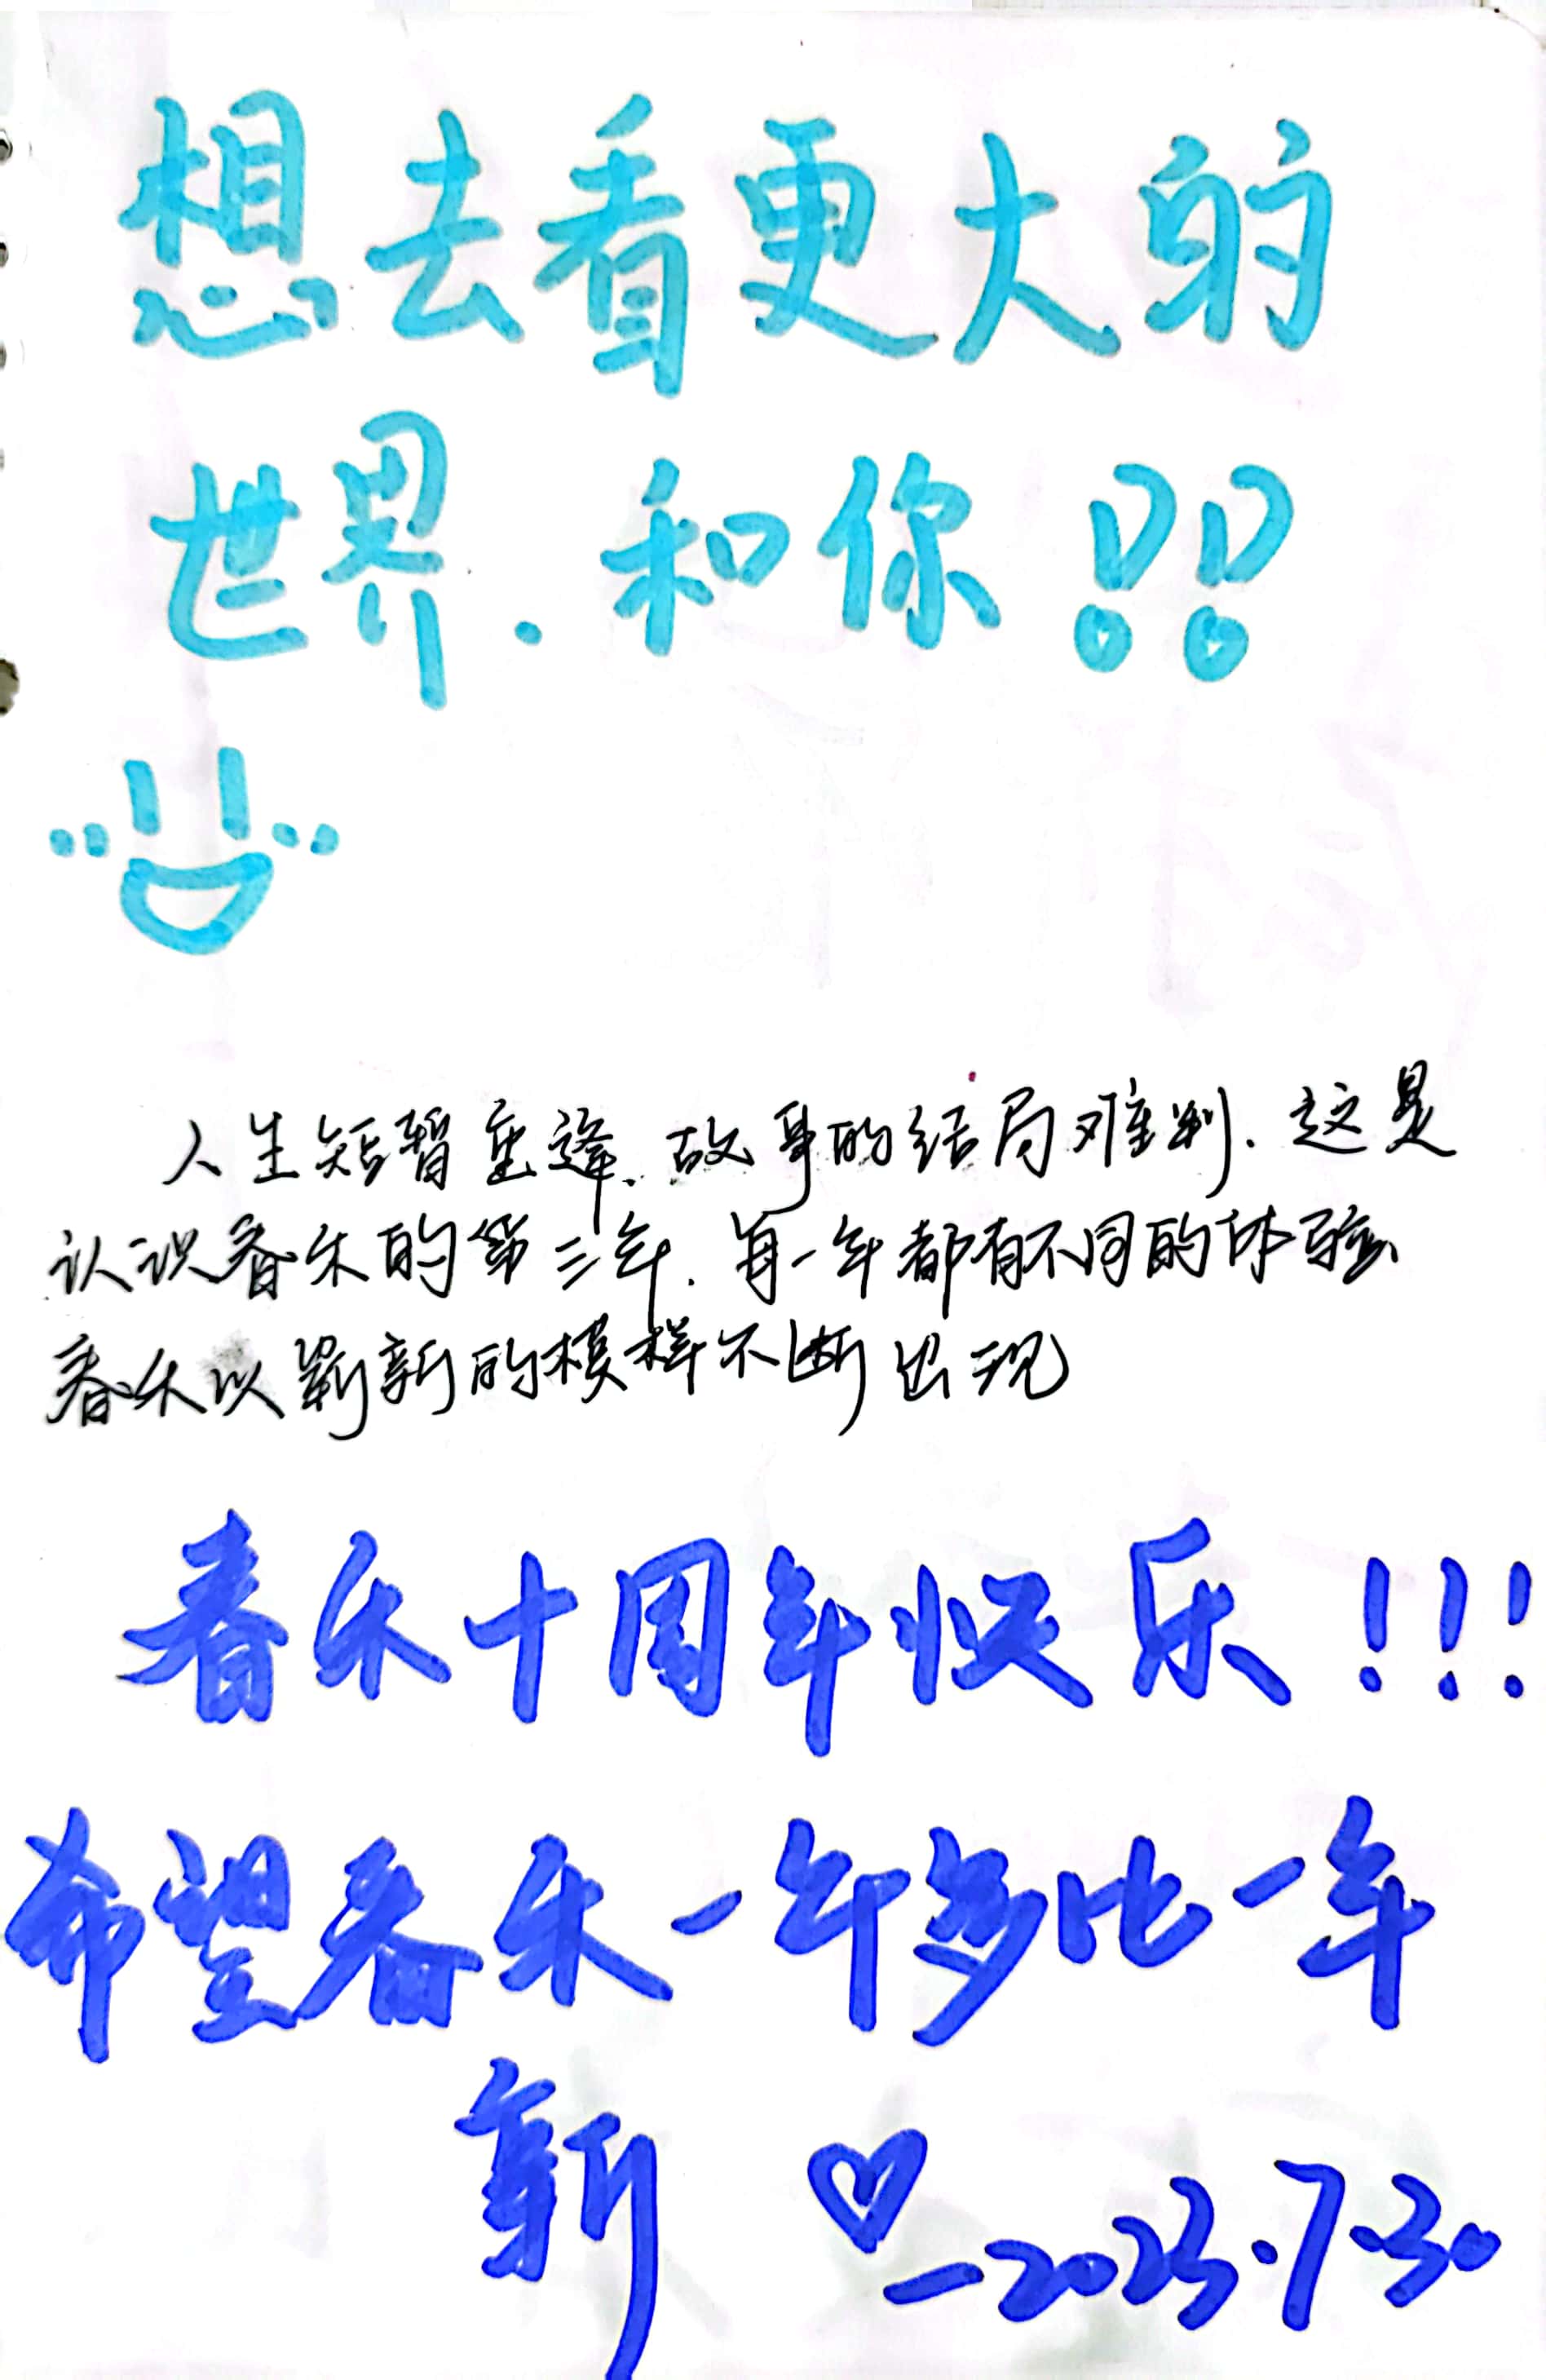 想去看更大的
世界.和你!!
人生短暂重逢.故事的结局难判.这是
认识春禾的第三年.每一年都有不同的体验
春禾以崭新的模样不断出现
春禾十周年快乐!!!
希望春禾一年多比一年
新 ♡ —2023.7.30